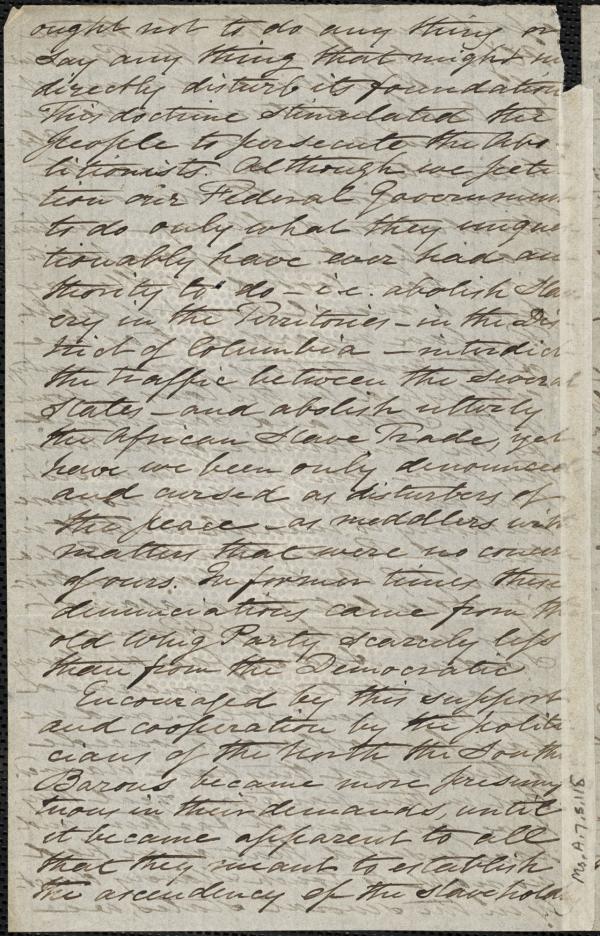 ought not to do any thing or
say any thing that might in
directly disturb its foundation
This doctrine stimulated the
people to persecute the Abo
litionists. Although we peti
tion our Federal Government
to do only what they unques
tionably have ever had au
thority to do – i.e. abolish Slav
ery in the Territories – in the Dis
trict of Columbia – interdict
the traffic between the several
States – and abolish utterly
the African Slave Trade, yet
have we been only denounced
and cursed as disturbers of
the peace – as meddlers with
matters that were no concern
of ours. In former times these
denunciations came from th
old Whig Party scarcely less
than from the Democratic
Encouraged by this support
and cooperation by the politi
cians of the North the South
Barons became more presump
tuous in their demands, until
it became apparent to all
that they meant to establish
the ascendency of the slavehold
Ms.A.7.5.115